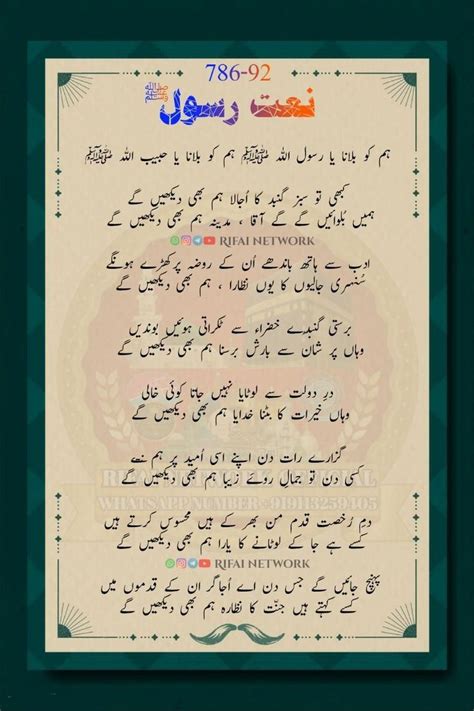 786-92
نعت رسول ﷺ
ہم کو بلانا یا رسول اللہ ﷺ ہم کو بلانا یا حبیب اللہ ﷺ
کبھی تو سبز گنبد کا اُجالا ہم بھی دیکھیں گے
ہمیں بُلوائیں گے آقا ، مدینہ ہم بھی دیکھیں گے
RIFAI NETWORK
ادب سے ہاتھ باندھے اُن کے روضہ پر کھڑے ہونگے
سُنہری جالیوں کا یوں نظارا ، ہم بھی دیکھیں گے
برستی گنبدِ خضراء سے ٹکراتی ہوئیں بوندیں
وہاں پر شان سے بارش برسنا ہم بھی دیکھیں گے
درِ دولت سے لوٹایا نہیں جاتا کوئی خالی
وہاں خیرات کا بٹنا خدایا ہم بھی دیکھیں گے
گزارے رات دن اپنے اسی اُمید پر ہم نے
کسی دن تو جمالِ روئے زیبا ہم بھی دیکھیں گے
RIFAI NETWORK OFFICIAL
WHATSAPP NUMBER
دمِ رُخصت قدم من بھر کے ہیں محسوس کرتے ہیں
کسے ہے جا کے لوٹانے کا یارا ہم بھی دیکھیں گے
RIFAI NETWORK
پہنچ جائیں گے جس دن اے اُجاگر ان کے قدموں میں
کسے کہتے ہیں جنّت کا نظارہ ہم بھی دیکھیں گے